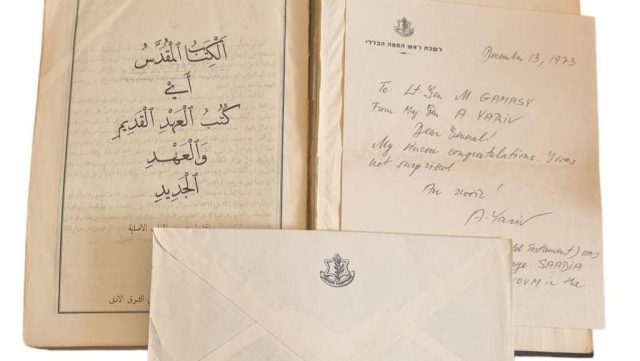 الكتاب المقدس
أي
كتب العهد القديم
والعهد
الجديد
الشرق الأدنى
December 13, 1973
To: Lt Gen M GAMASY
From Maj Gen A YARIV
Dear General!
My sincere congratulations. I was
not surprised.
A. Yariv
Testament) was
SAADIA
in the